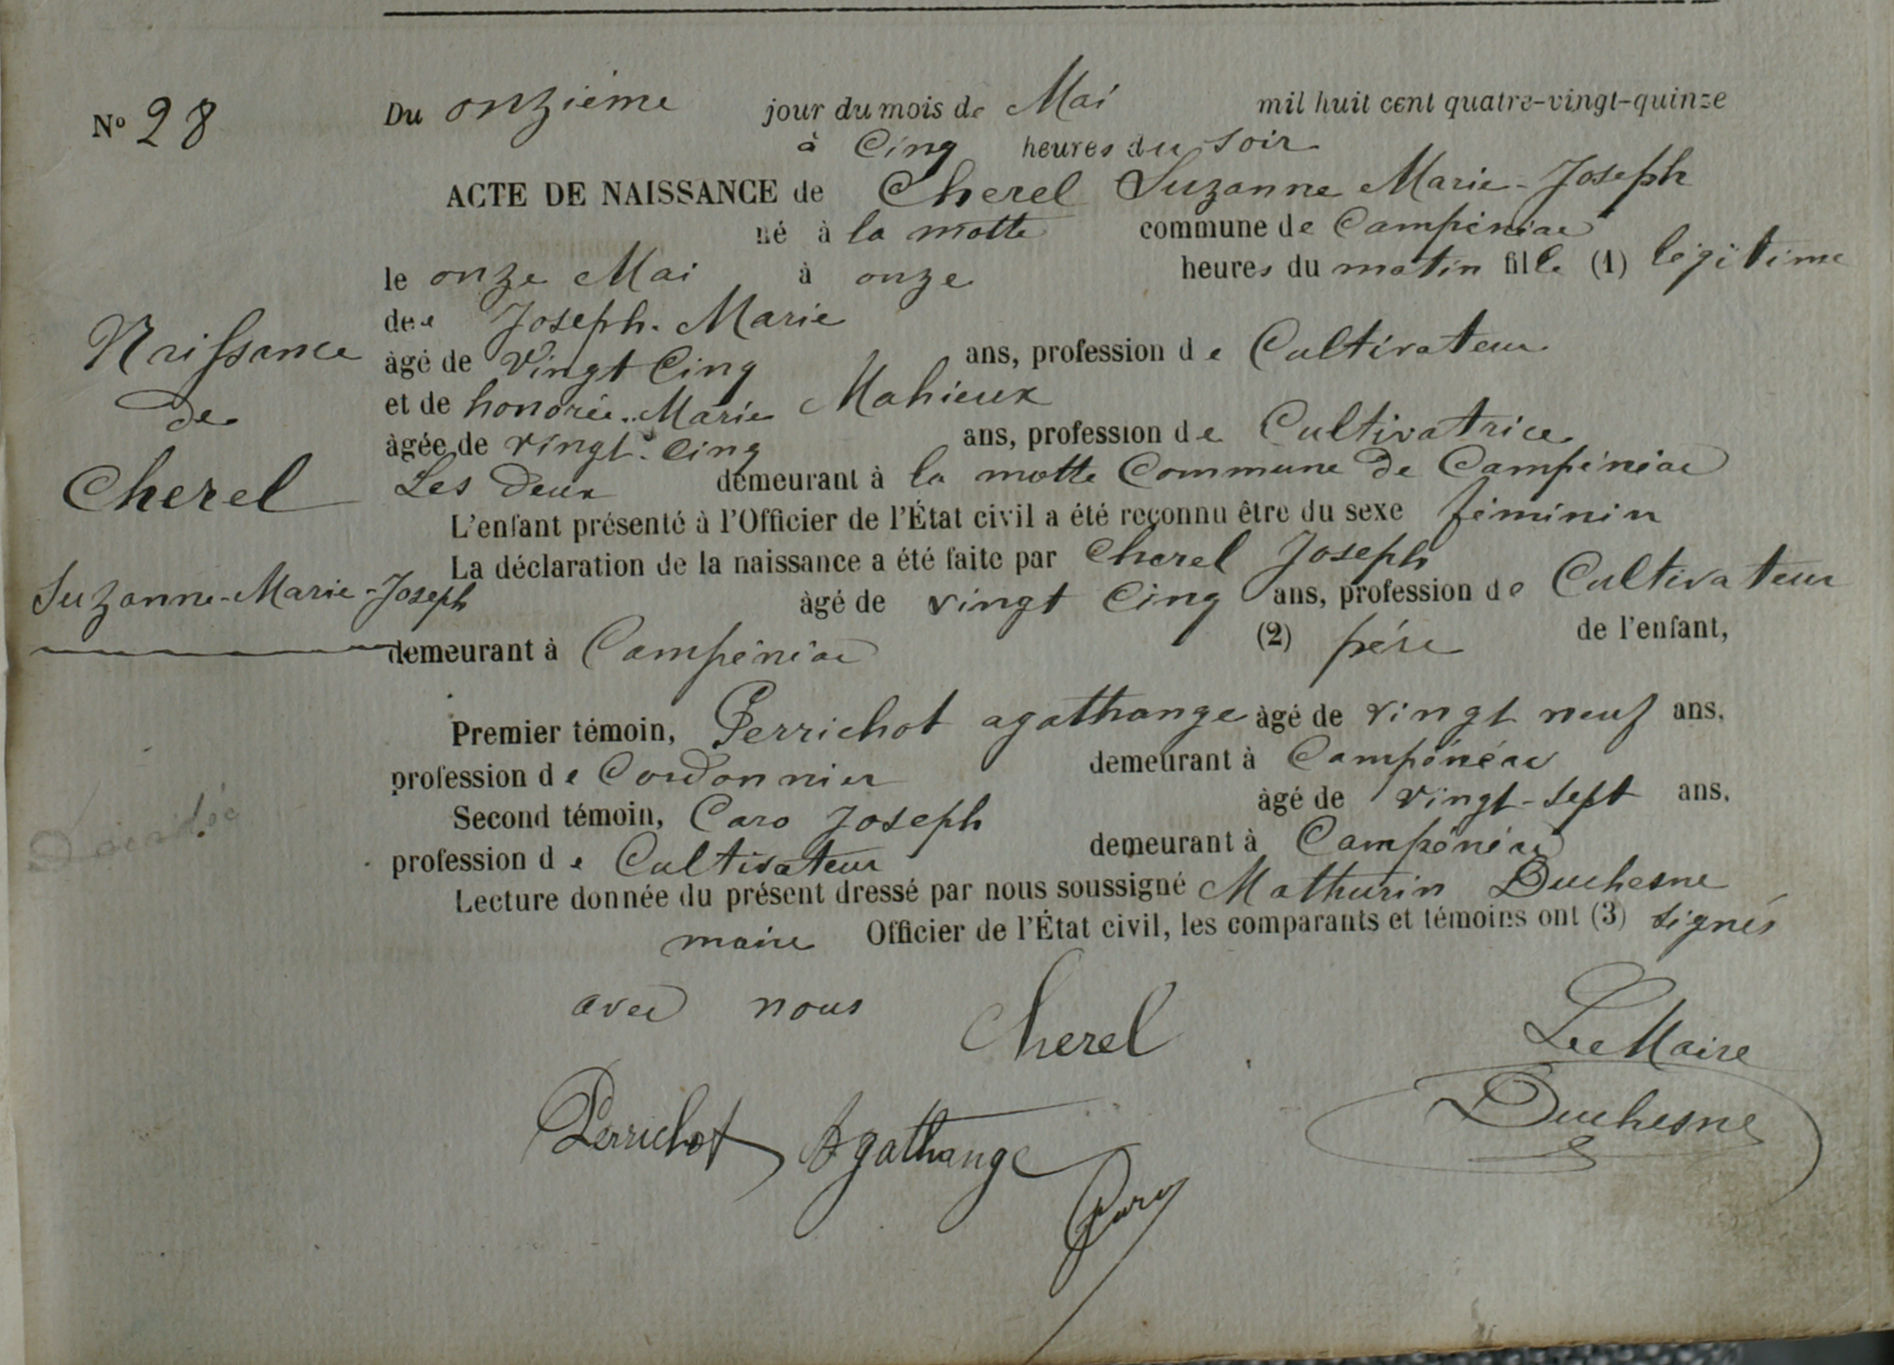 N° 28
Du onzième jour du mois de Mai mil huit cent quatre-vingt-quinze
à Cinq heures du soir
ACTE DE NAISSANCE de Cherel Suzanne Marie-Joseph
né à la motte commune de Campénéac
le onze Mai à onze heures du matin fille (1) légitime
de Joseph-Marie
âgé de Vingt Cinq ans, profession de Cultivateur
et de honorée-Marie Mahieux
âgée de vingt-cinq ans, profession de Cultivatrice
Les deux demeurant à la motte Commune de Campénéac
L'enfant présenté à l'Officier de l'État civil a été reconnu être du sexe féminin
La déclaration de la naissance a été faite par Cherel Joseph
âgé de vingt Cinq ans, profession de Cultivateur
demeurant à Campénéac (2) père de l'enfant,
Premier témoin, Perrichot agathange âgé de vingt neuf ans.
profession de Cordonnier demeurant à Campénéac
Second témoin, Caro Joseph âgé de vingt-sept ans.
profession de Cultivateur demeurant à Campénéac
Lecture donnée du présent dressé par nous soussigné Mathurin Duchesne
maire Officier de l'État civil, les comparants et témoins ont (3) signés
avec nous
Cherel
Le Maire
Duchesne
Perrichot Agathange
Caro
Naissance
de
Cherel
Suzanne-Marie-Joseph